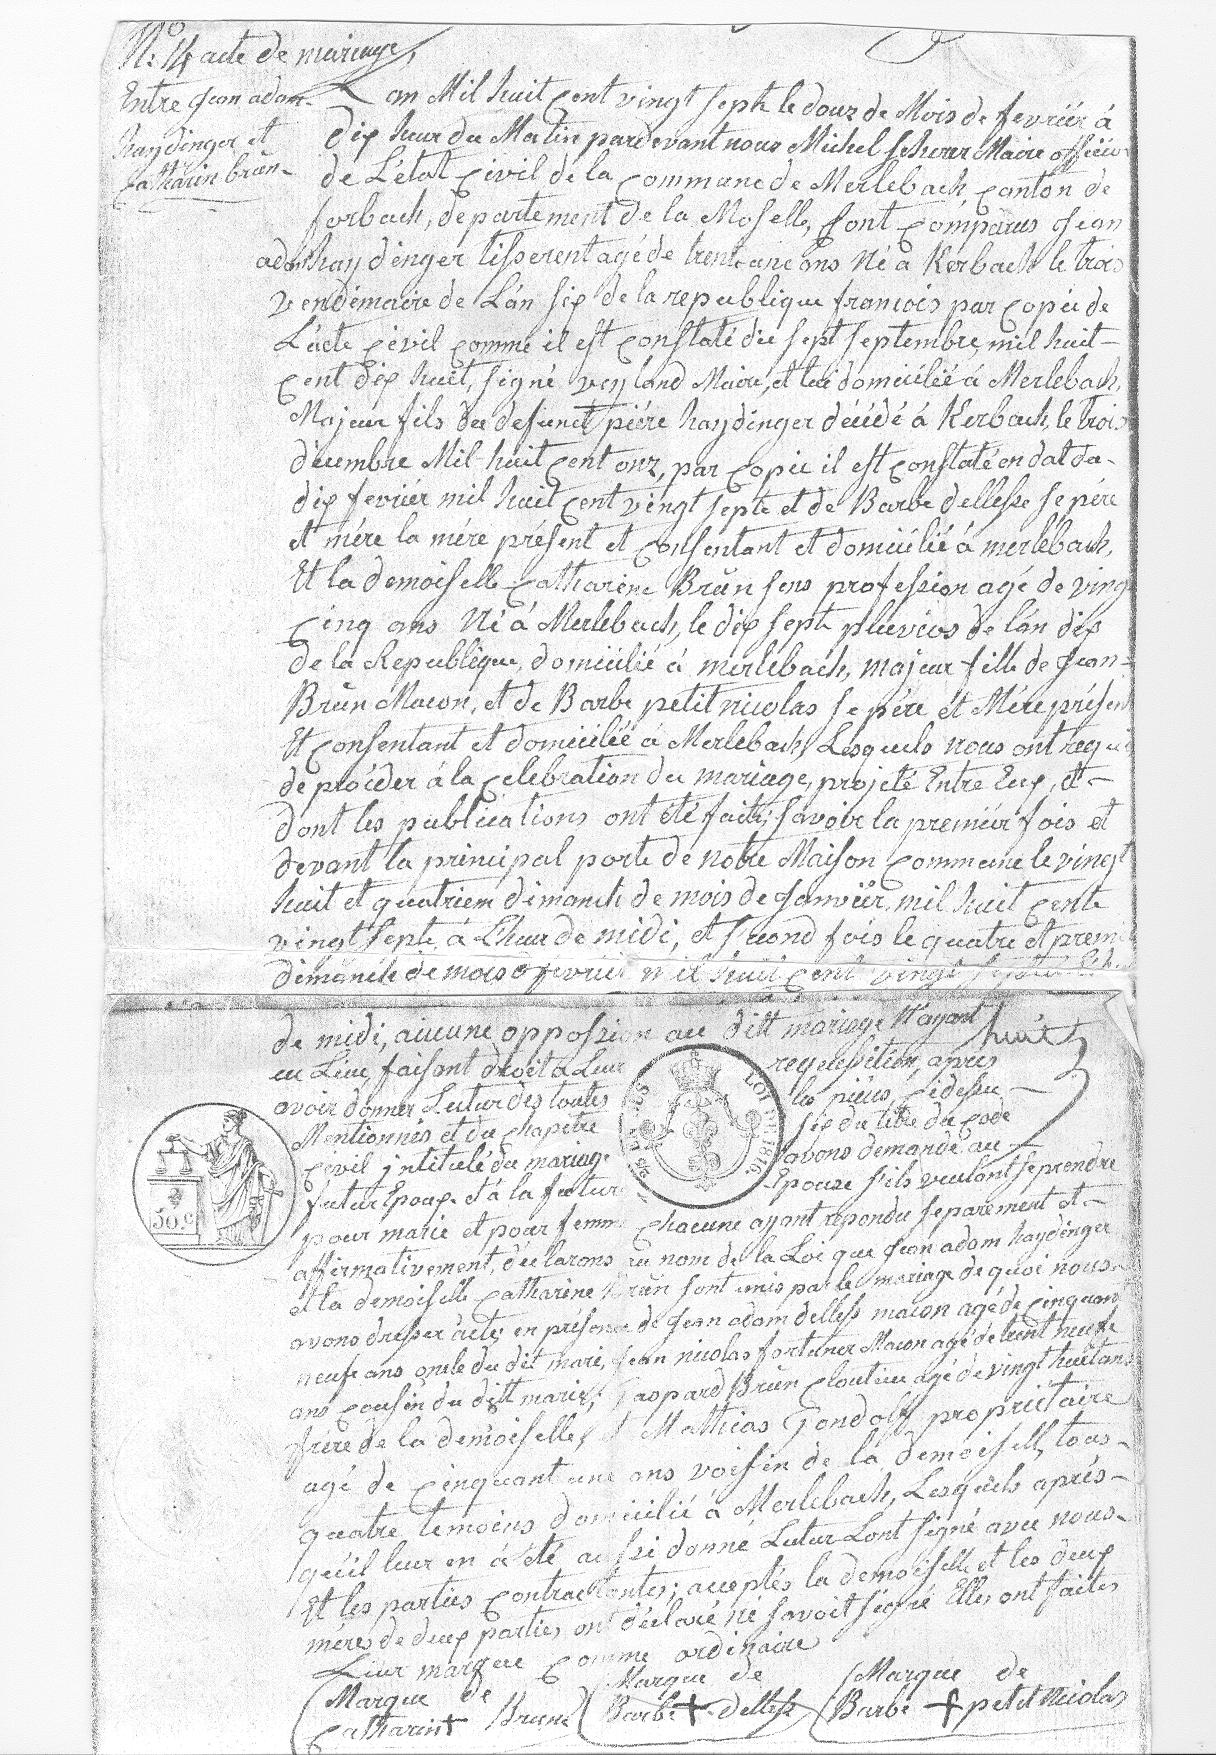 No. 14 acte de mariage,
Entre Jean adam
haydinger et
Catharin brün
L'an Mil huit Cent vingt septe le douz de Mois de fevriér à
dix heur du Matin pardevant nous Michel Scherer Maire officier
de L'état Civil de la Commune de Merlebach, Canton de
forbach, departement de la Moselle, sont Comparus Jean
adam haydinger tisserent agé de trent ans Né a Kerbach le trois
vendemaire de L'an six de la republique francois par Copie de
L'acte Civil comme il est Constaté du sept septembre, mil huit
Cent dix huit, signé Weyland Maire, et lui domiciliée à Merlebach,
Majeur fils du defunct piére haydinger décédé à Kerbach, le trois
decembre Mil huit Cent onz, par Copie il est Constaté en dat du
dix fevriér mil huit Cent vingt septe et de Barbe dellesse se pére
et mére la mére présent et Consentant et domiciliée à merlebach,
Et la demoiselle Catharine Brün sens profession agé de ving
Cinq ans Né à Merlebach, le dix septe pluvios de l'an dix
de la Republique, domiciliée à merlebach, majeur fille de Jean
Brün Macon, et de Barbe petit nicolas se pére et Mére présen
Et Consentant et domiciliée à Merlebach, Lesquels nous ont requi
de procéder à la Celebration du mariage, projeté Entre Eux, et
dont les publications ont été faite; savoir la premiér fois et
devant la principal porte de notre Maison Commune le vingt
huit et quatriem dimanch de mois de Janviér, mil huit Cente
vingt septe, à L'heur de midi, et second fois le quatre et premi
dimanch de mois de fevriér mil huit Cent vingt septe
de midi, aucune oppossion au ditt mariage N'ayant
huit
eu Lieu, faisant droit à Leur requessition, apres
avoir donner Lectur des toutes les piéces, Cidessu
Mentionnés et du Chapitre six du titre du Code
Civil intitulé du mariage avons demandé au
futur Epoux et à la futur Epouse s'ils veulont se prendre
pour marie et pour femme Chacune ayant repondu separement et
affirmativement, déclarons au nom de la Loi que Jean adam haydinger
et la demoiselle Catharine Brün sont unis par le mariage de quoi nous
avons dresser acte, en présence de Jean adam dellesse macon agé de Cinquant
neufe ans oncle du dit marie, Jean nicolas fortuner Macon agé de trent neufe
ans Cousin du ditt marie; Gaspard Brün Cloutiér agé de vingt huit ans
frére de la demoiselle, et Mathias Gondolff propriétaire
agé de Cinquant une ans voissin de la demoiselle, tous
quatre temoins domicilié à Merlebach, Lesquels aprés
qu'il leur en à été aussi donné Lectur Lont signé avec nous
Et les parties Contractantes; acceptés la demoiselle et les deux
méres de deux parties ont déclaré né savoit signé Elles ont faites
Leur marque Comme ordinaire
Marque de
Catharin + Brune
Marque de
Barbe + dellesse
Marque de
Barbe + petit Nicolas
50 c
LOI DE 1816